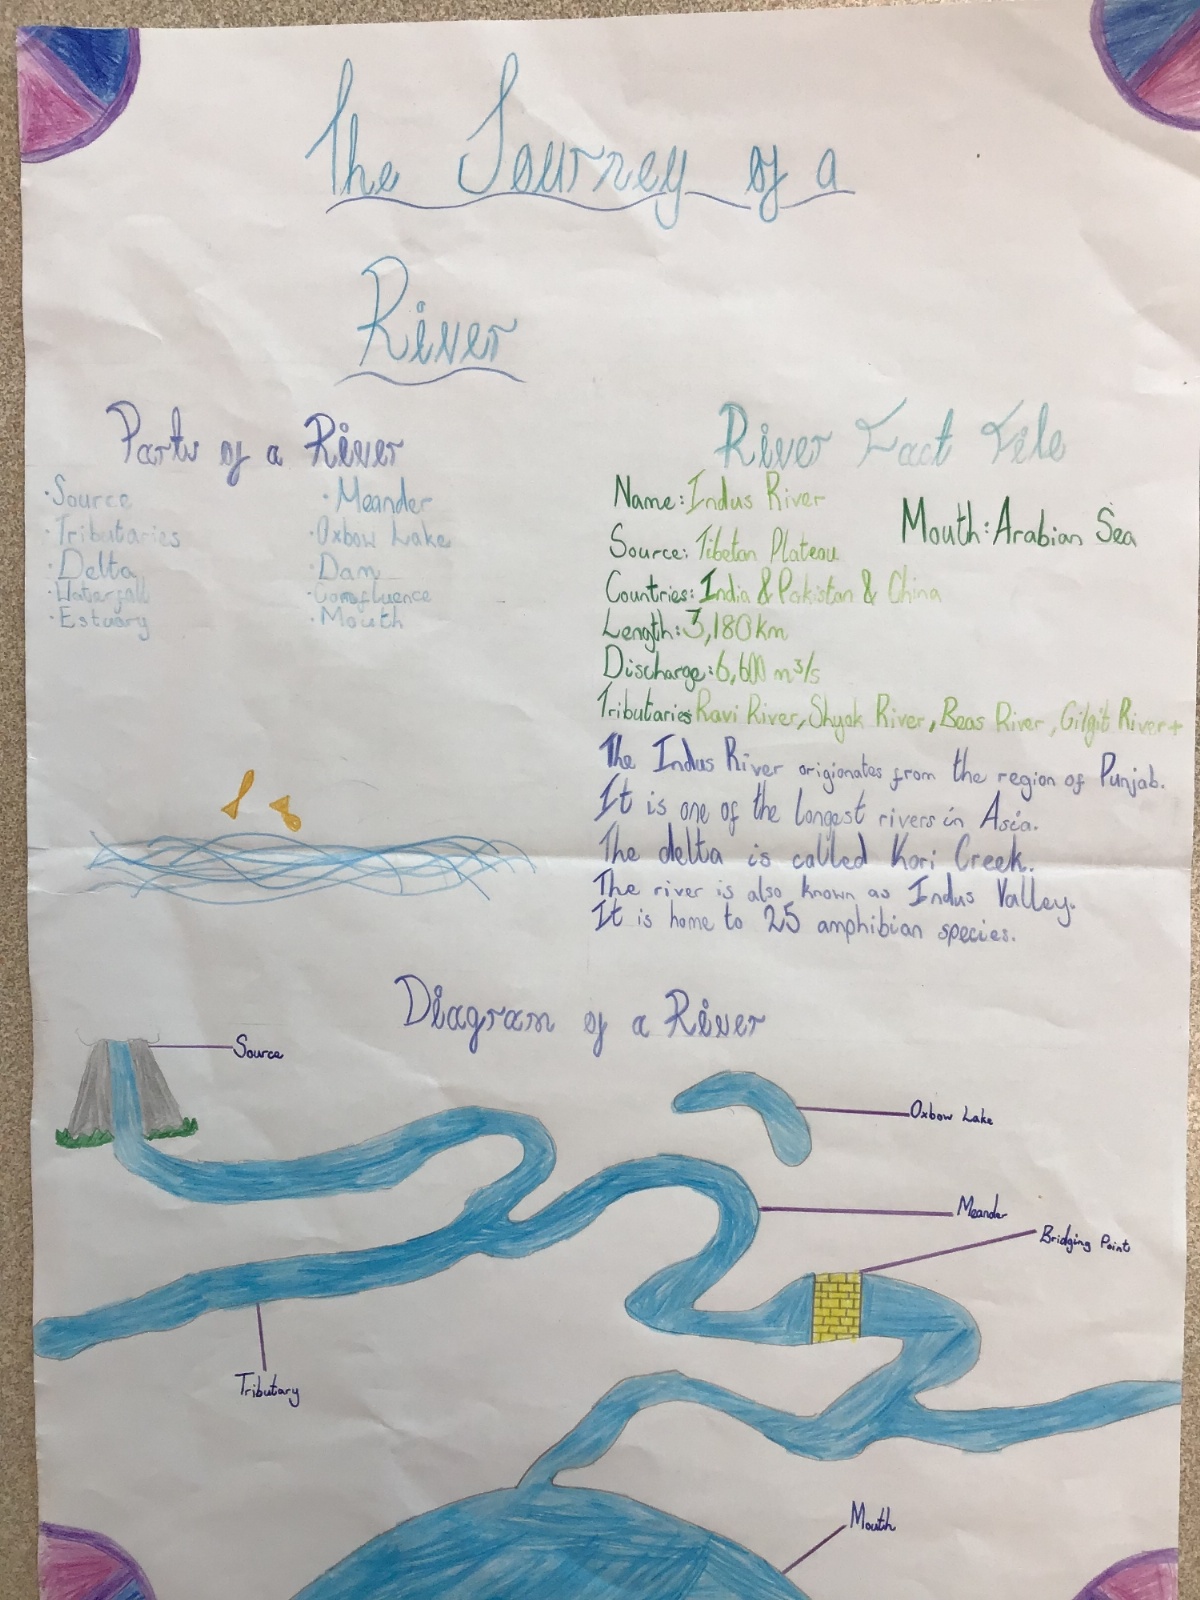 The Journey of a
River
Parts of a River
·Source
·Tributaries
·Delta
·Waterfall
·Estuary
·Meander
·Oxbow Lake
·Dam
·Comfluence
·Mouth
River Fact File
Name: Indus River
Mouth: Arabian Sea
Source: Tibetan Plateau
Countries: India & Pakistan & China
Length: 3,180 km
Discharge: 6,600 m³/s
Tributaries Ravi River, Shyok River, Beas River, Gilgit River +
The Indus River origionates from the region of Punjab.
It is one of the longest rivers in Asia.
The delta is called Kori Creek.
The river is also known as Indus Valley.
It is home to 25 amphibian species.
Diagram of a River
Source
Oxbow Lake
Meander
Bridging Point
Tributary
Mouth